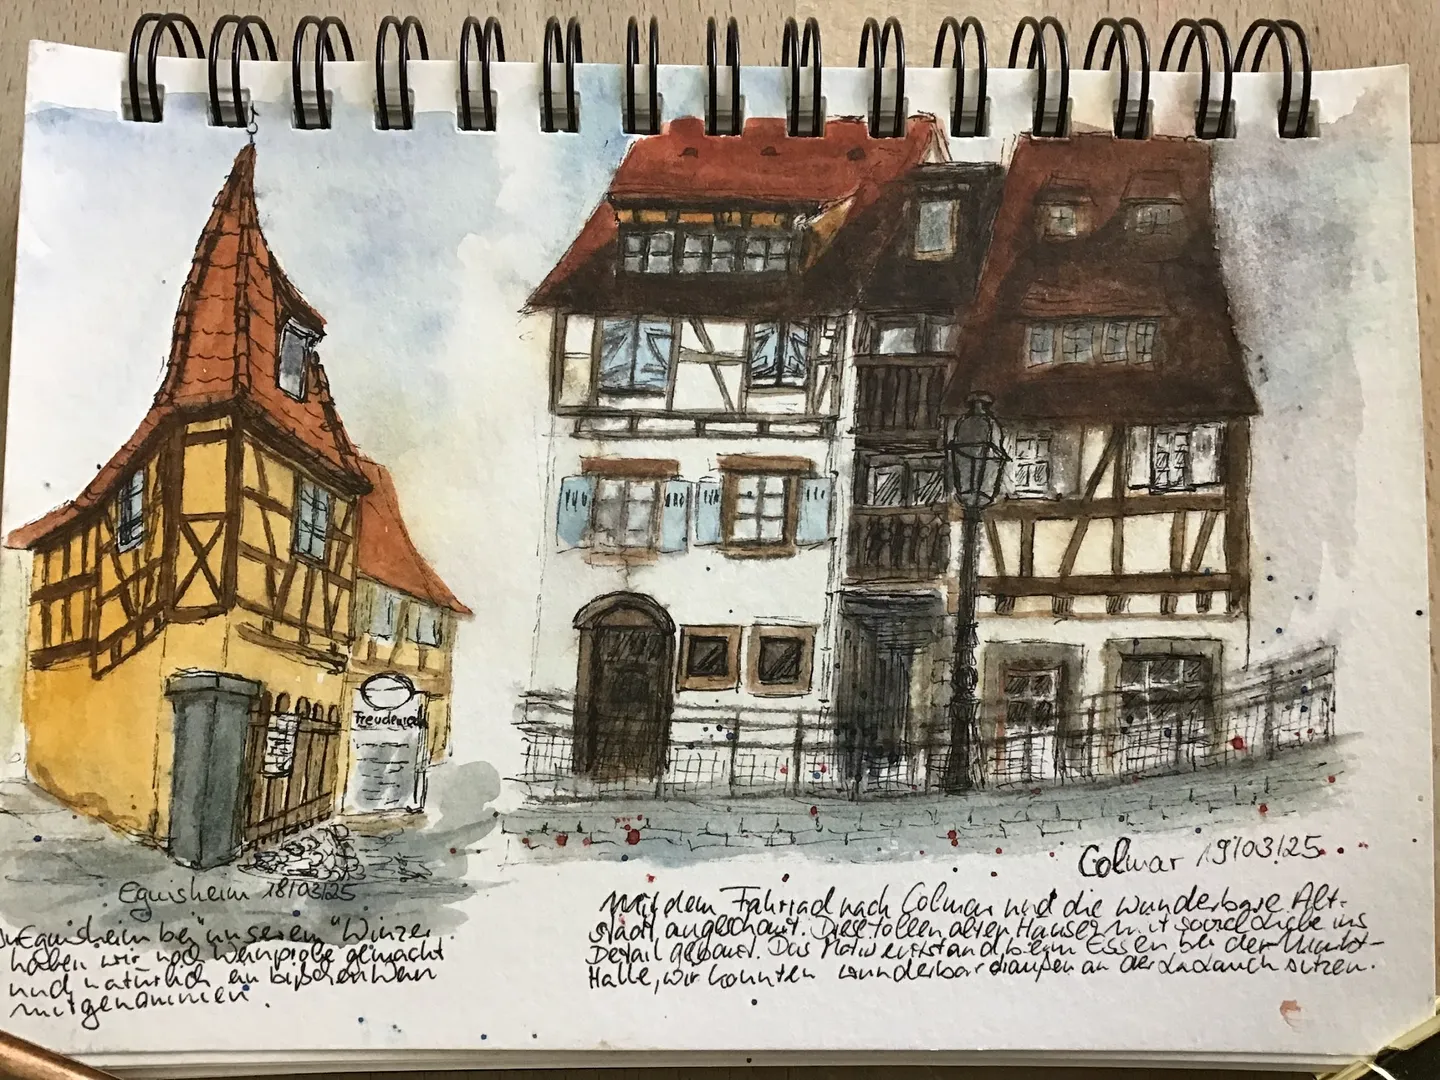 Freudenreich
Eguisheim 18/03/25
In Eguisheim bei "unserem" Winzer
haben wir noch Weinprobe gemacht
und natürlich ein bißchen Wein
mitgenommen.
Colmar 19/03/25
Mit dem Fahrrad nach Colmar und die wunderbare Alt-
stadt angeschaut. Diese tollen alten Häuser mit soviel Liebe ins
Detail gebaut. Das Motiv entstand beim Essen bei der Markt-
Halle, wir konnten wunderbar draußen an der Lauch sitzen.